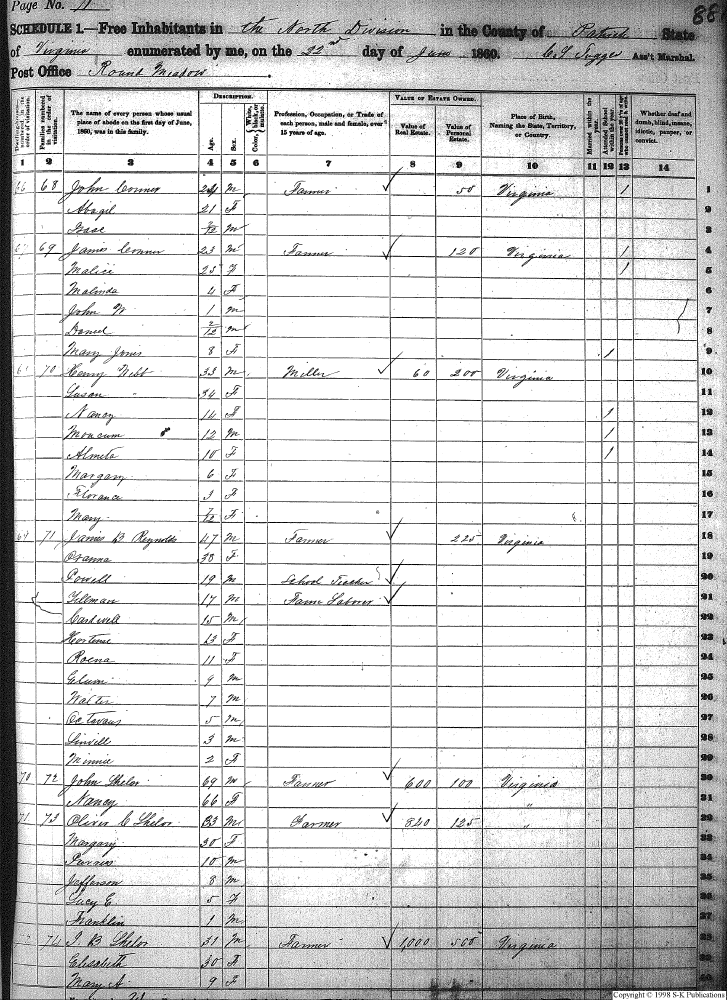 Page No. 11
88
SCHEDULE 1.—Free Inhabitants in the North Division in the County of Patrick State
of Virginia enumerated by me, on the 22nd day of June 1860. Ass't Marshal.
Post Office Round Meadow
DESCRIPTION. VALUE OF ESTATE OWNED.
The name of every person whose usual place of abode on the first day of June, 1860, was in this family. Age. Sex. Profession, Occupation, or Trade of each person, male and female, over 15 years of age. Value of Real Estate. Value of Personal Estate. Place of Birth, Naming the State, Territory, or Country. Married within the year. Whether deaf and dumb, blind, insane, idiotic, pauper, or convict.
1 2 3 4 5 6 7 8 9 10 11 12 13 14
66 68 John Conner 24 M Farmer 50 Virginia / 1
Abagil 21 F 2
Isaac M 3
69 James Conner 23 M Farmer 120 Virginia / 4
Malici 25 F / 5
Malinda 4 F 6
John W 1 M 7
Daniel 2/12 M 8
Mary Jones 8 F / 9
70 Henry Webb 33 M Miller 60 200 Virginia 10
Susan 34 F 11
Nancy 14 F / 12
Moncum 12 M / 13
Almeta 10 F / 14
Margary 6 F 15
Florance 3 F 16
Mary F 17
69 71 James B Reynolds 47 M Farmer 225 Virginia 18
38 F 19
Powell 19 M School Teacher 20
Tillman 17 M Farm Laborer 21
Cardwell 15 M 22
Hortense 13 F 23
Roena 11 F 24
9 M 25
Walter 7 M 26
Octavus 5 M 27
Linvill 3 M 28
Minnie 2 F 29
70 72 John Shelor 69 M Farmer 600 100 Virginia 30
Nancy 66 F " 31
71 73 Oliver C Shelor 33 M Farmer 840 125 " 32
Margary 30 F
10 M
Jefferson 8 M
Lacy E 5 F
Franklin 1 M
74 J. B Shelor 31 M Farmer 1,000 500 Virginia
Elisabeth 30 F
Mary A 9 F
Copyright © 1998 S-K Publications